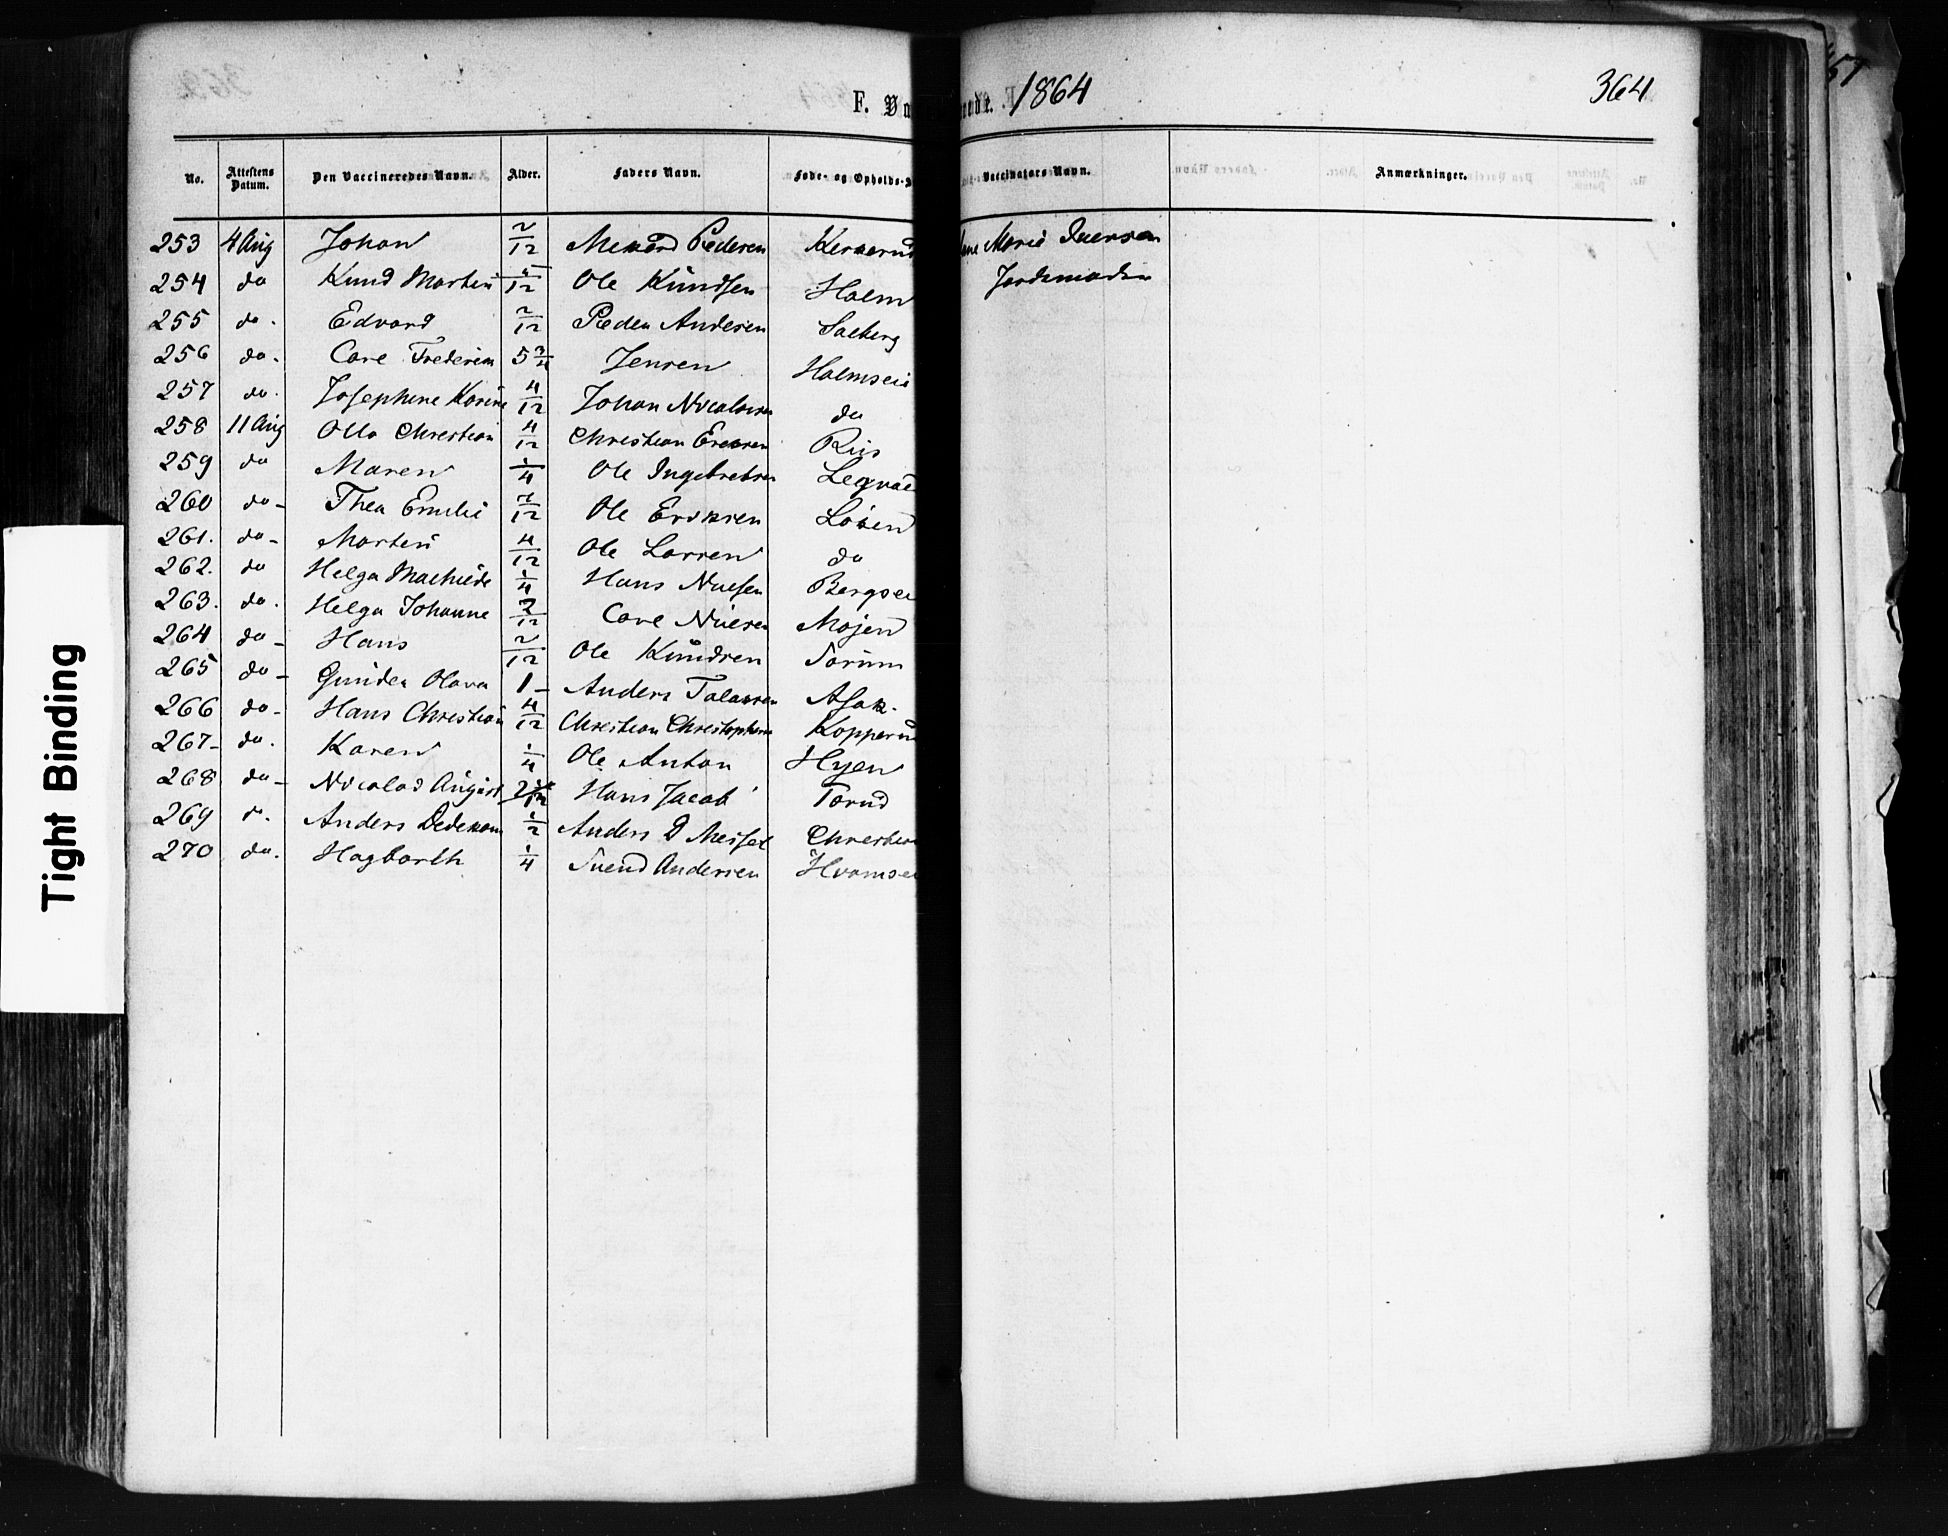 F. Va
nede. 1864
364
No. Attestens Datum. Den Vaccineredes Navn. Alder. Faders Navn. Føde- og Opholds- Vaccinators Navn. Anmærkninger.
253 4 Aug Johan 2/12 Pedersen Marie Iversen
254 do Knud Martin 5/12 Ole Knudsen Holm Jordemoder
255 do. Edvard 2/12 Peder Andersen Solberg
256 do. Carl Frederik 5 3/4 Jensen Holmsei
257 do. Josephine Karine 4/12 Johan Nicolaisen do
258 11 Aug Olla Christian 4/12 Christian Eriksen Riis
259 do Maren 1/4 Ole Ingebretsen
260 do - Thea Emilie 2/12 Ole Eriksen Løken
261. do - Martin 4/12 Ole Larsen do
262. do Helga Mathilde 1/4 Hans Nielsen Bergsei
263. do. Helga Johanne 2/12 Carl Nilsen Mojen
264 do - Hans 2/12 Ole Knudsen Sorum
265 do - Gunda Olava 1 - Anders Asak.
266 do - Hans Christian 4/12 Christian Christophersen Kopperud
267 - do. Karen 1/4 Ole Anton Hyen
268 do - Nicolas August Hans Jacob Torud
269 d. Anders Dedekam 1/2 Anders D
270 do. Hagbarth 1/4 Svend Andersen Hvamsei
Tight Binding